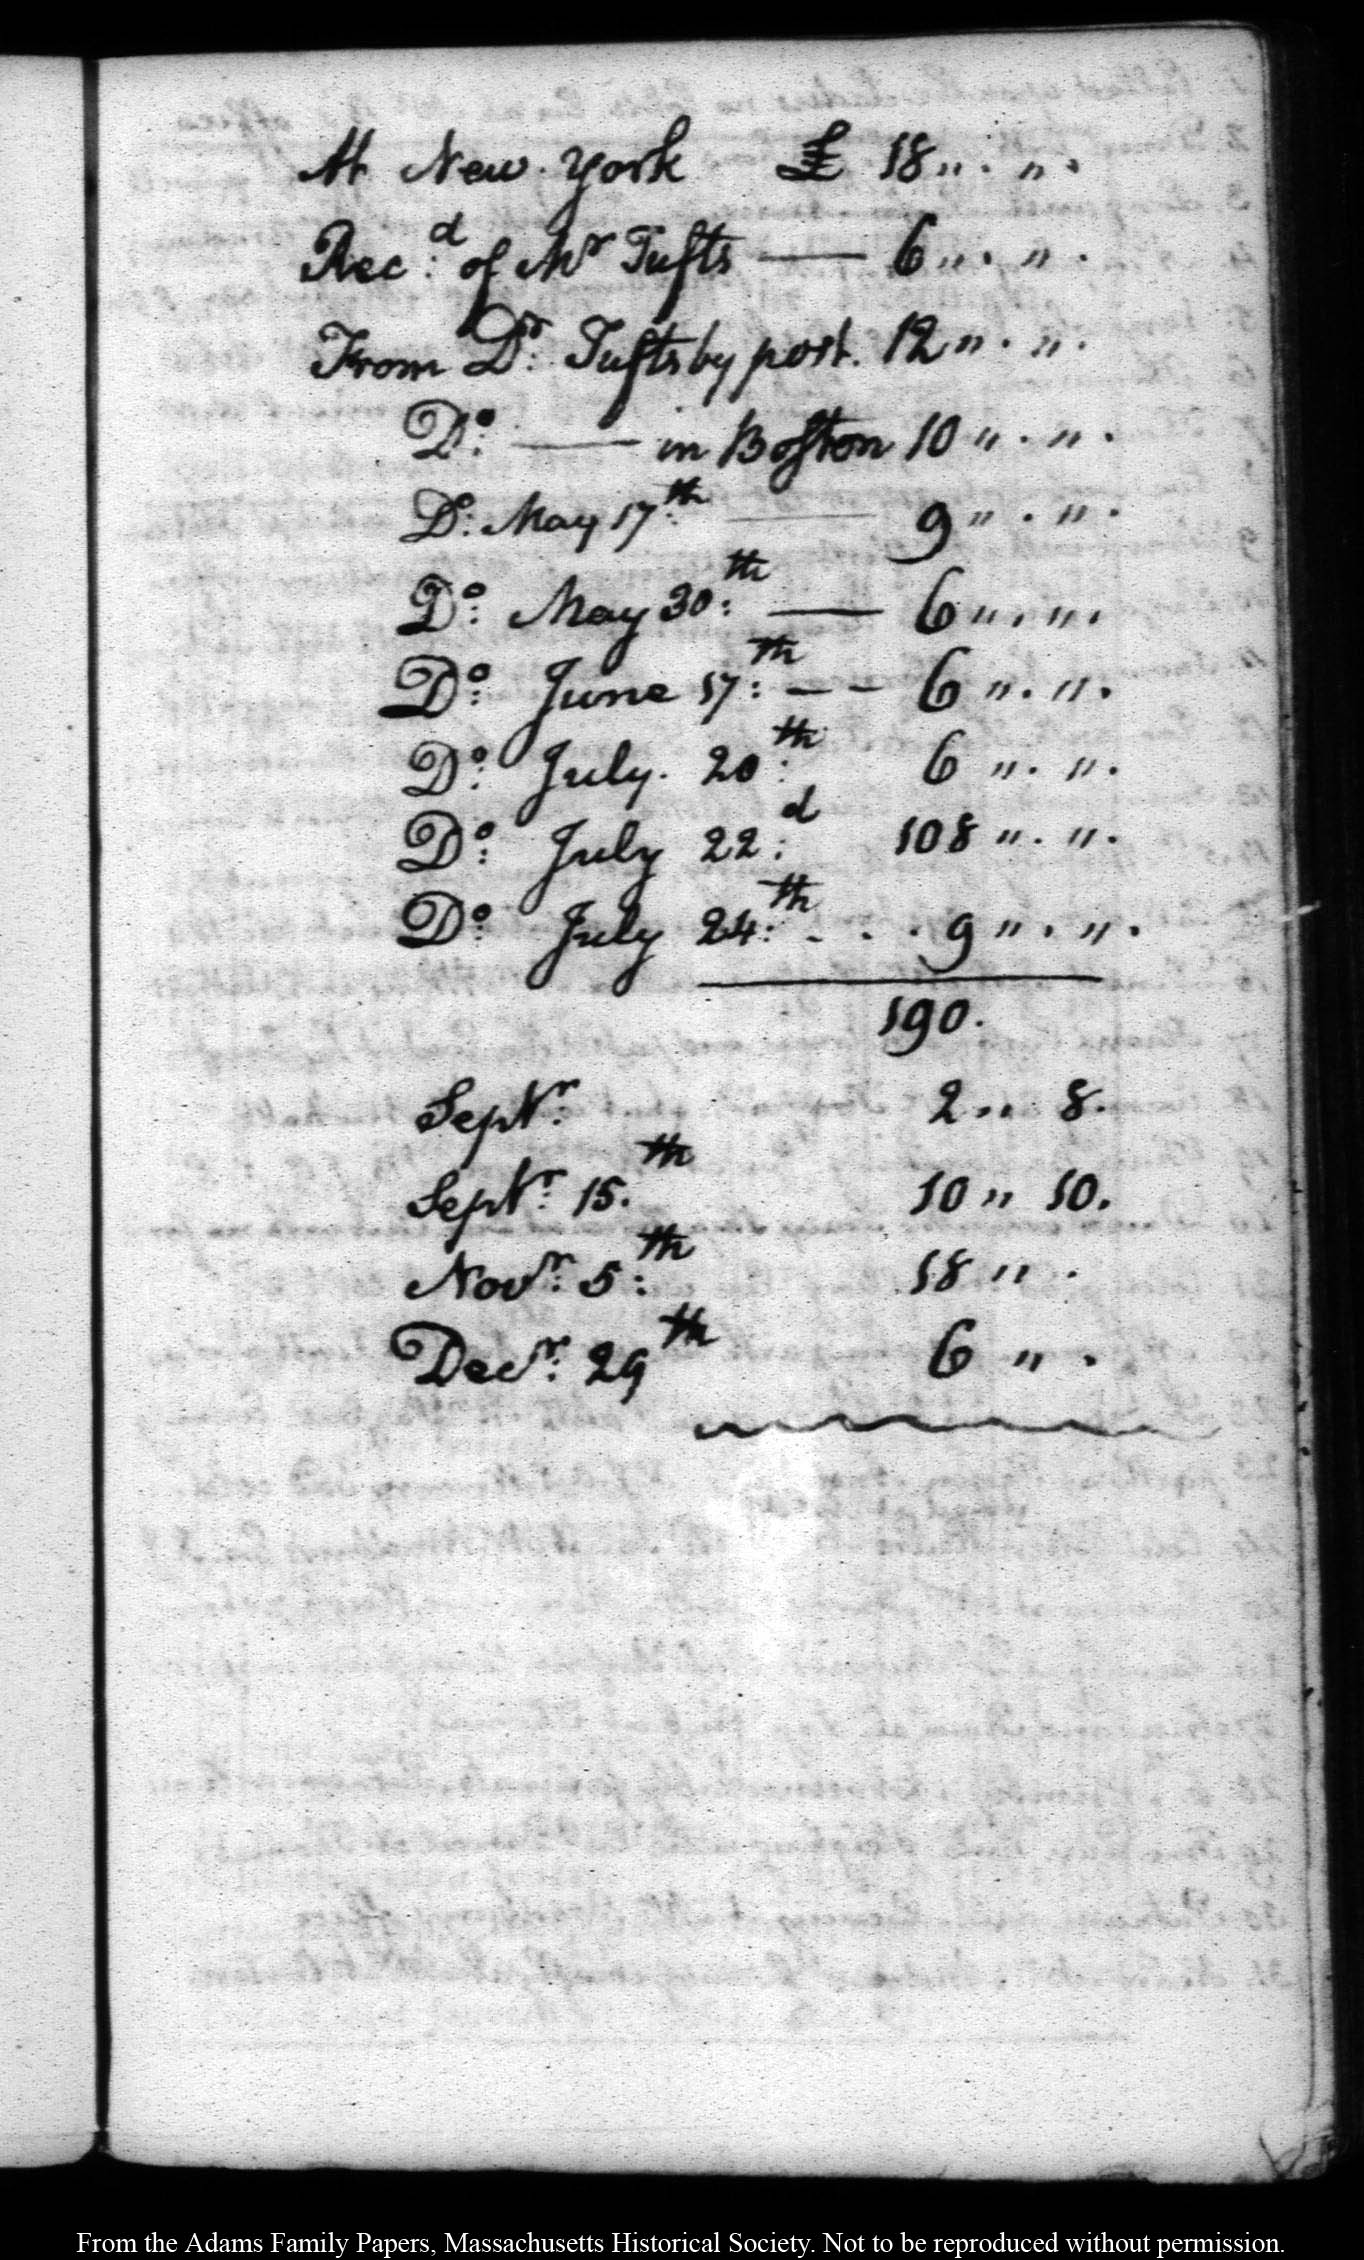 At New-York £ 18 " . " .
Rec:d of Mr Tufts — 6 " . " .
From Dr: Tufts by post. 12 " . " .
Do: — in Boston 10 " . " .
Do: May 17:th — 9 " . " .
Do: May 30:th — 6 " . " .
Do: June 17:th — — 6 " . " .
Do: July. 20:th 6 " . " .
Do: July 22:d 108 " . " .
Do: July 24:th . . . 9 " . " .
190.
Septr: 2 " 8.
Septr: 15.th 10 " 10.
Novr: 5:th 18 " .
Decr: 29th 6 " .
From the Adams Family Papers, Massachusetts Historical Society. Not to be reproduced without permission.